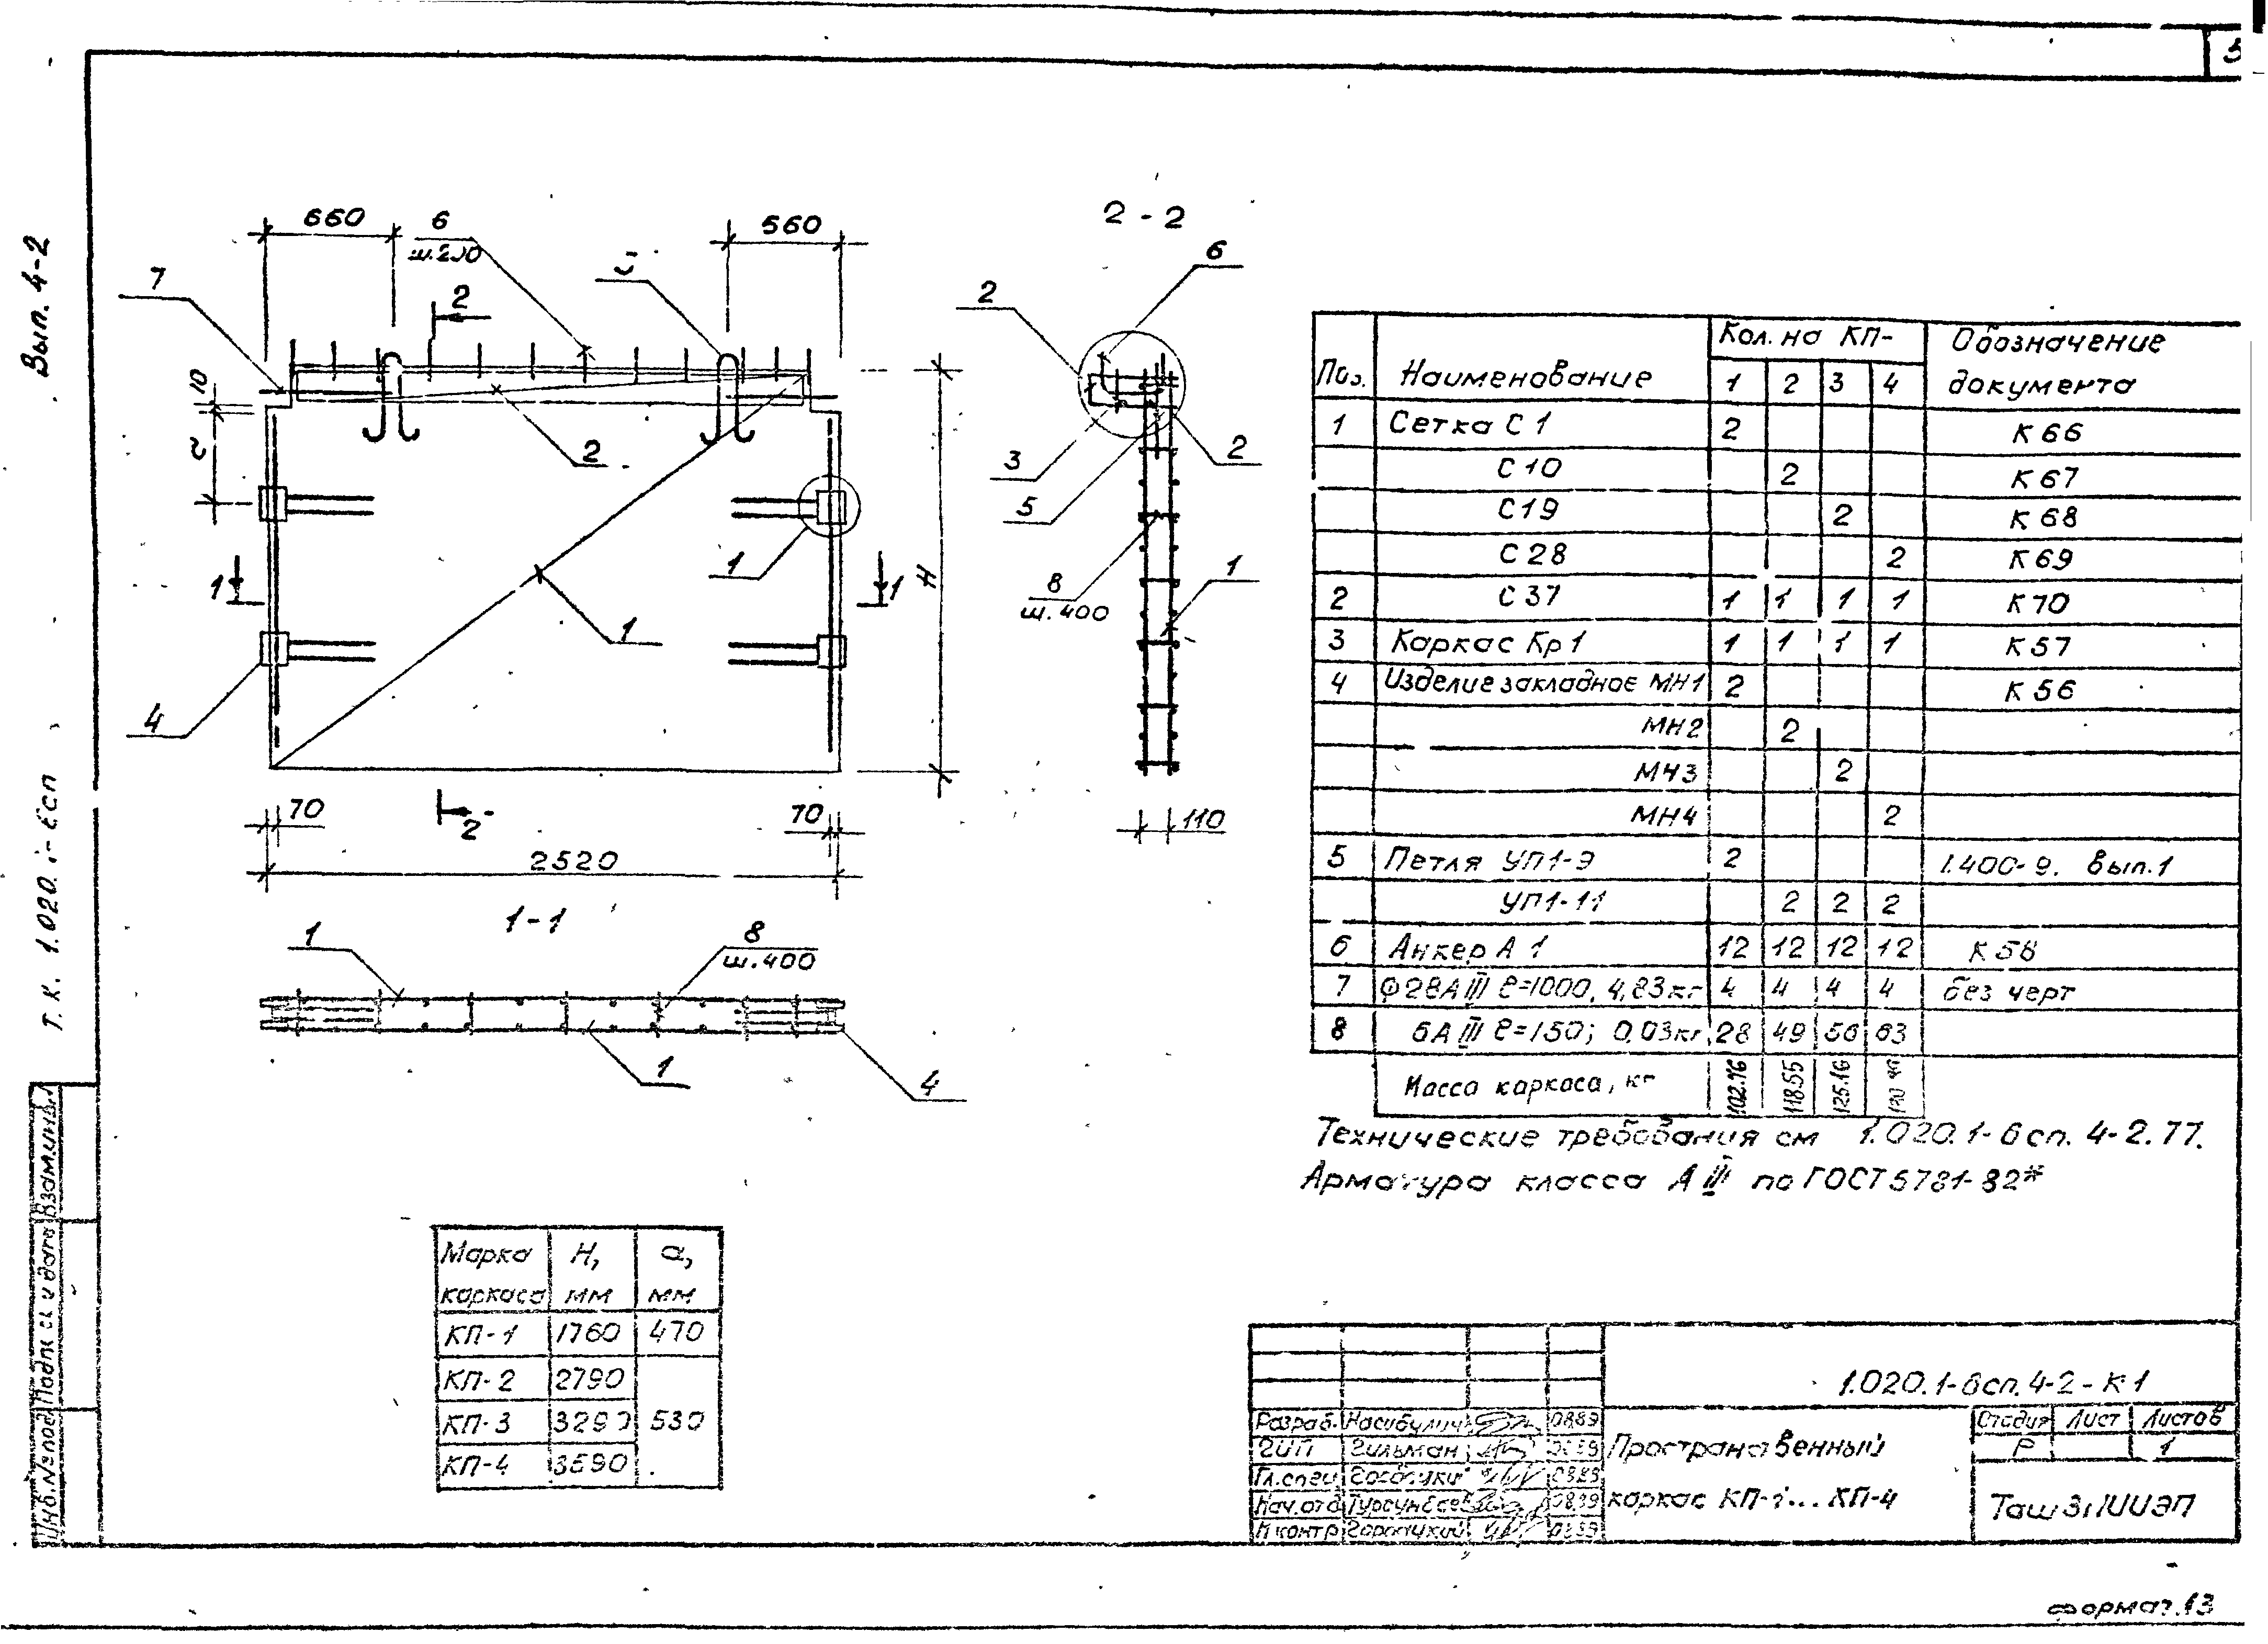 Вып. 4-2
Т.К. 1.020.
660
6
560
7
2
10
2
1
1
1
1
4
H
70
2
70
2520
1-1
1
8
ш.400
1
4
2-2
6
2
3
5
2
8
ш.400
1
110
Поз. Наименование Кол. на КП- Обозначение документа
1 2 3 4
1 Сетка С1 2 К66
С10 2 К67
С19 2 К68
С28 2 К69
2 С37 1 1 1 1 К70
3 Каркас Кр1 1 1 1 1 К57
4 Изделие закладное МН1 2 К56
МН2 2
МН3 2
МН4 2
5 Петля УП1-9 2 1.400-9. вып.1
УП1-11 2 2 2
6 Анкер А1 12 12 12 12 К58
7 Ф28АIII ℓ=1000, 4,83кг 4 4 4 4 без черт
8 6АIII ℓ=150; 0,03кг 28 49 56 63
Масса каркаса, кг 102.76 118.55 125.16
Технические требования см 1.020.1-6сп. 4-2.ТТ.
Арматура класса АIII по ГОСТ 5781-82*
Марка каркаса H, мм а, мм
КП-1 1760 470
КП-2 2790
КП-3 3290 530
КП-4 3590
1.020.1-6сп. 4-2-К1
Разраб. 0889
ГИП Гильман 0889
Гл.спец 0889
Нач.отд 0889
Н контр 0889
Пространственный
каркас КП-1...КП-4
Стадия Лист Листов
Р 1
ТашЗНИИЭП
Инв.№подл Подпись и дата Взам.инв.№
формат А3